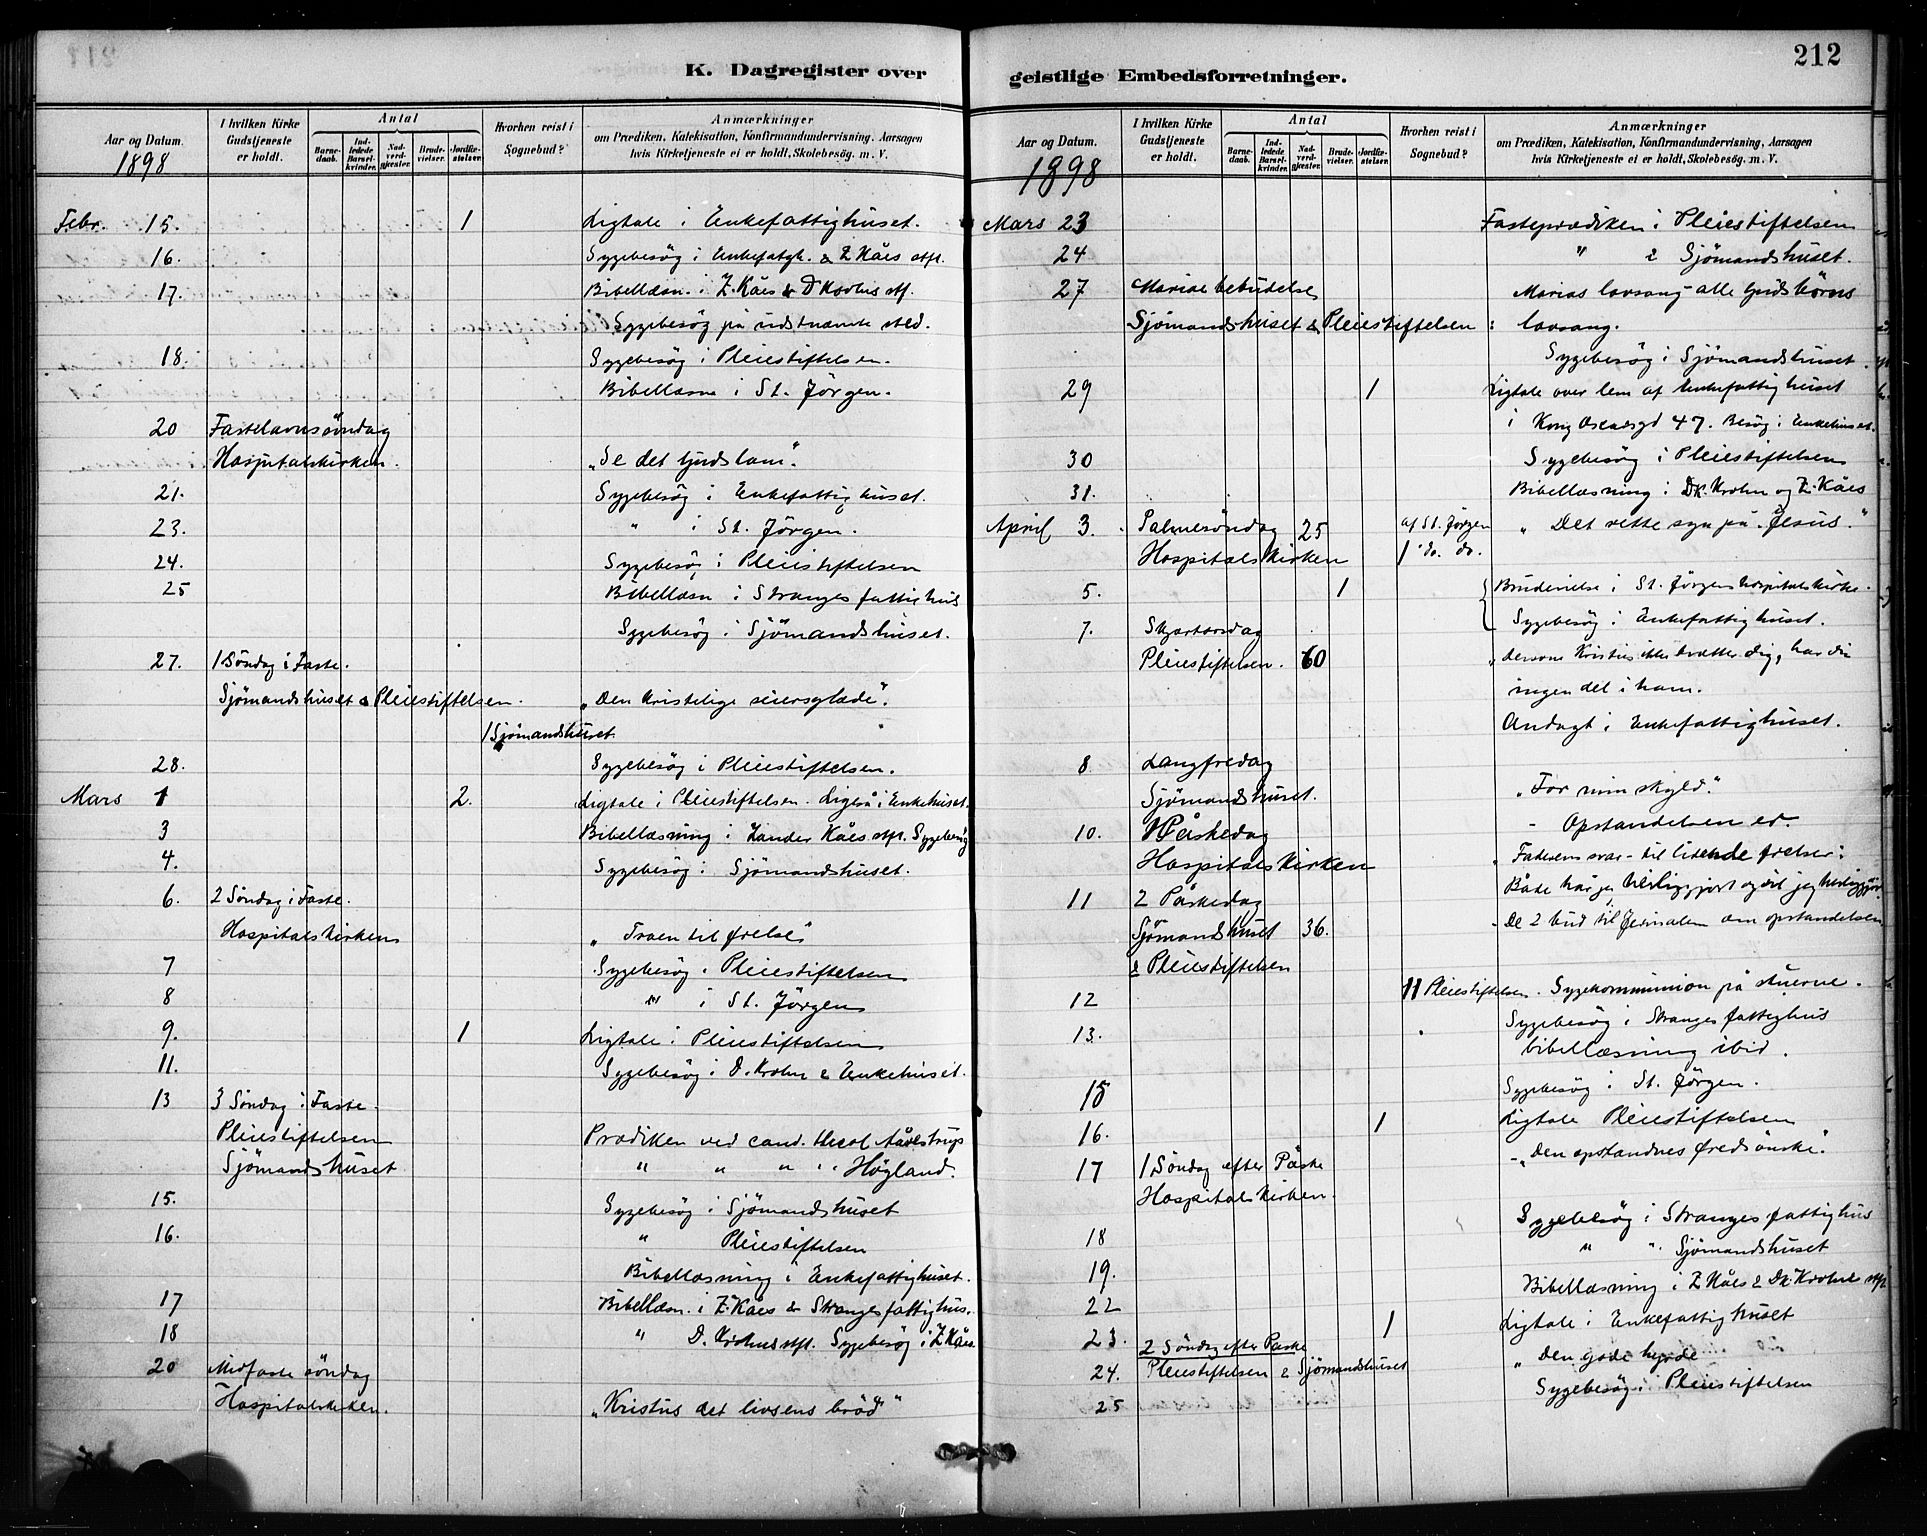 212
K. Dagregister over
geistlige Embedsforretninger.
Aar og Datum.
I hvilken Kirke Gudstjeneste er holdt.
Antal
Barnedaab.
Indledede Barselkvinder.
Nadverdgjester.
Brudevielser.
Jordfæstelser.
Hvorhen reist i Sognebud?
Anmærkninger
om Prædiken, Katekisation, Konfirmandundervisning, Aarsagen
hvis Kirketjeneste ei er holdt, Skolebesög. m. V.
1898
Febr. 15. 1 Ligtale i Enkefattighuset.
16. Sygebesög i Enkefatgh. & Z Kåes stft.
17. Bibellæsn. i Z. Kåes & D Krohns stf.
Sygebesög på sidstnævnte sted.
18. Sygebesög i Pleiestiftelsen.
Bibellæsn i St. Jörgen.
20 Fastelavnssöndag
Hospitalskirken. "Se det Gudslam".
21. Sygebesög i Enkefattighuset.
23. " i St. Jörgen.
24. Sygebesög i Pleiestiftelsen
25 Bibellæsn i Stranges fattighus
Sygebesög i Sjömandshuset.
27. 1 Söndag i Faste.
Sjömandshuset & Pleiestiftelsen. "Den kristelige seiersglæde".
1 Sjömandshuset.
28. Sygebesög i Pleiestiftelsen.
Mars 1 2. Ligtale i Pleiestiftelsen. Ligså i Enkehuset.
3 Bibellæsning i Zander Kåes stft. Sygebesög
4. Sygebesög i Sjömandshuset.
6. 2 Söndag i Faste.
Hospitalskirken "Troen til frelse"
7 Sygebesög i Pleiestiftelsen
8 " i St. Jörgen
9. 1 Ligtale i Pleiestiftelsen
11. Sygebesög i D. Krohn & Enkehuset.
13 3 Söndag i Faste.
Pleiestiftelsen Prædiken ved cand. theol Aarestrup
Sjömandshuset " " " " Högland.
15. Sygebesög i Sjömandshuset
16. " Pleiestiftelsen
Bibellæsning i Enkefattighuset.
17 Bibellæsn. i Z. Kåes & Stranges fattighus.
18 " D. Krohns stft. Sygebesög i Z Kåes
20 Midfaste söndag
Hospitalskirken. "Kristus det livsens bröd"
Aar og Datum.
I hvilken Kirke Gudstjeneste er holdt.
Antal
Barnedaab.
Indledede Barselkvinder.
Nadverdgjester.
Brudevielser.
Jordfæstelser.
Hvorhen reist i Sognebud?
Anmærkninger
om Prædiken, Katekisation, Konfirmandundervisning, Aarsagen
hvis Kirketjeneste ei er holdt, Skolebesög m. V.
1898
Mars 23 Fasteprædiken i Pleiestiftelsen
24 " & Sjömandshuset.
27 Mariae bebudelse Marias lovsang - alle Guds börns
Sjömandshuset & Pleiestiftelsen : lovsang.
Sygebesög i Sjömandshuset.
29 1 Ligtale over lem af Enkefattighuset
i Kong Oscarsgd 47. Besög i Enkehuset.
30 Sygebesög i Pleiestiftelsen
31. Bibellæsning i Dk. Krohn og Z. Kåes
April 3. Palmesöndag 25 af St. Jörgen "Det rette syn på Jesus."
Hospitalskirken 1 do. do.
5. 1 Brudevielse i St. Jörgens hospitalskirke.
Sygebesög i Enkefattighuset.
7. Skjærtorsdag
Pleiestiftelsen. 60 "dersom Kristus ikke tvætter dig, har du
ingen del i ham.
Andagt i Enkefattighuset.
8 Langfredag
Sjömandshuset. "For min skyld."
10. Påskedag - Opstandelsen er.
Hospitalskirken Faderens svar - til lidende frelser:
Både har jeg herliggjort og vil jeg herliggjör.
11 2 Påskedag
Sjömandshuset 36. - De 2 bud til Jerusalem om opstandelsen
& Pleiestiftelsen
12 11 Pleiestiftelsen. Sygekommunion på stuerne.
13. Sygebesög i Stranges fattighus
bibellæsning ibid.
15 Sygebesög i St. Jörgen.
16. 1 Ligtale Pleiestiftelsen
17 1 Söndag efter Påske - "Den opstandnes fredsönske".
Hospitalskirken.
18 Sygebesög i Stranges fattighus
" " Sjömandshuset
19. Bibellæsning i Z Kåes & Dk. Krohns stft
22
23. 1 Ligtale i Enkefattighuset
2 Söndag efter Påske
24. Pleiestiftelsen & Sjömandshuset "Den gode hyrde
25 Sygebesög i Pleiestiftelsen